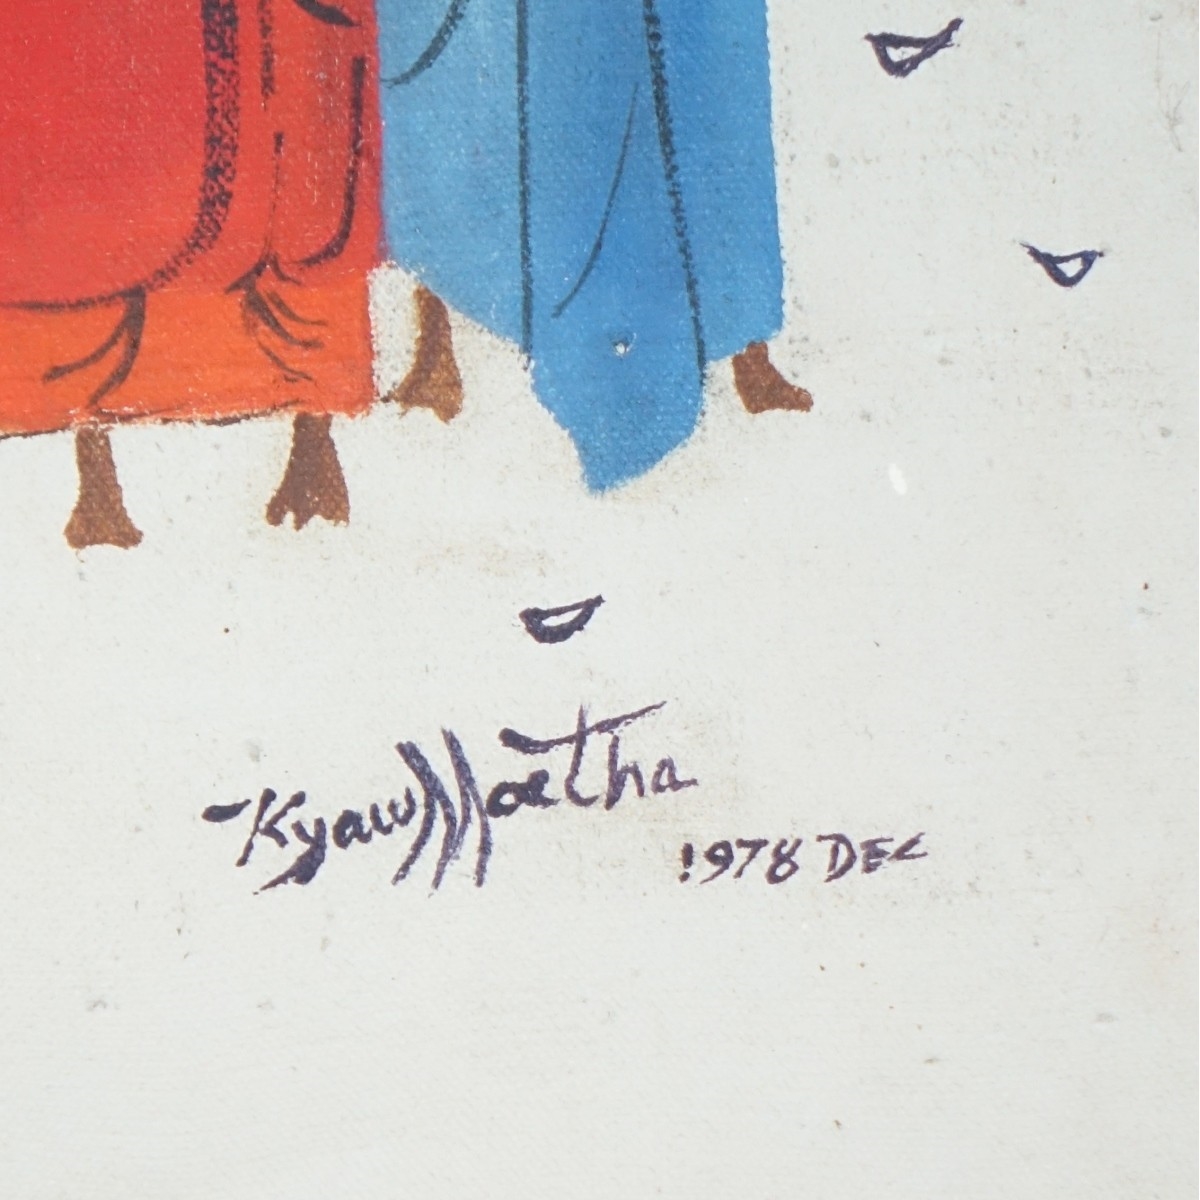 Kyaw Moe Tha
1978 DEC